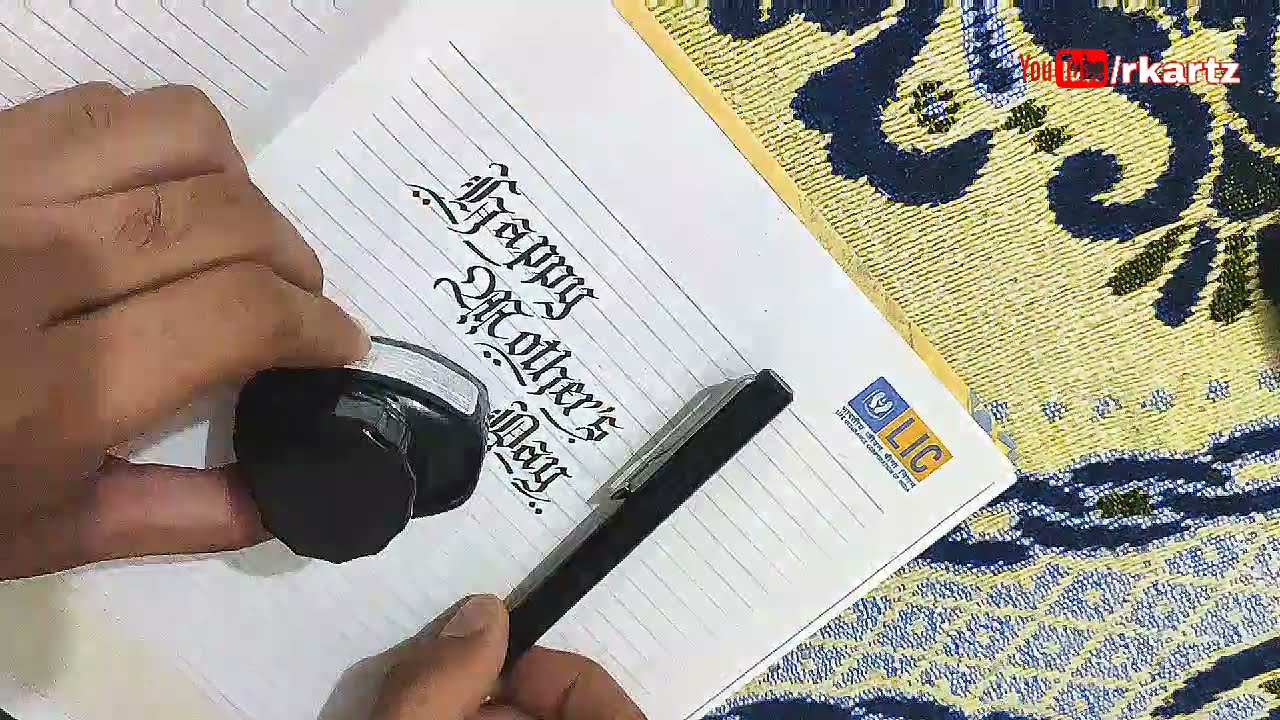 YouTube/rkartz
Happy
Mother's
Day
LIC